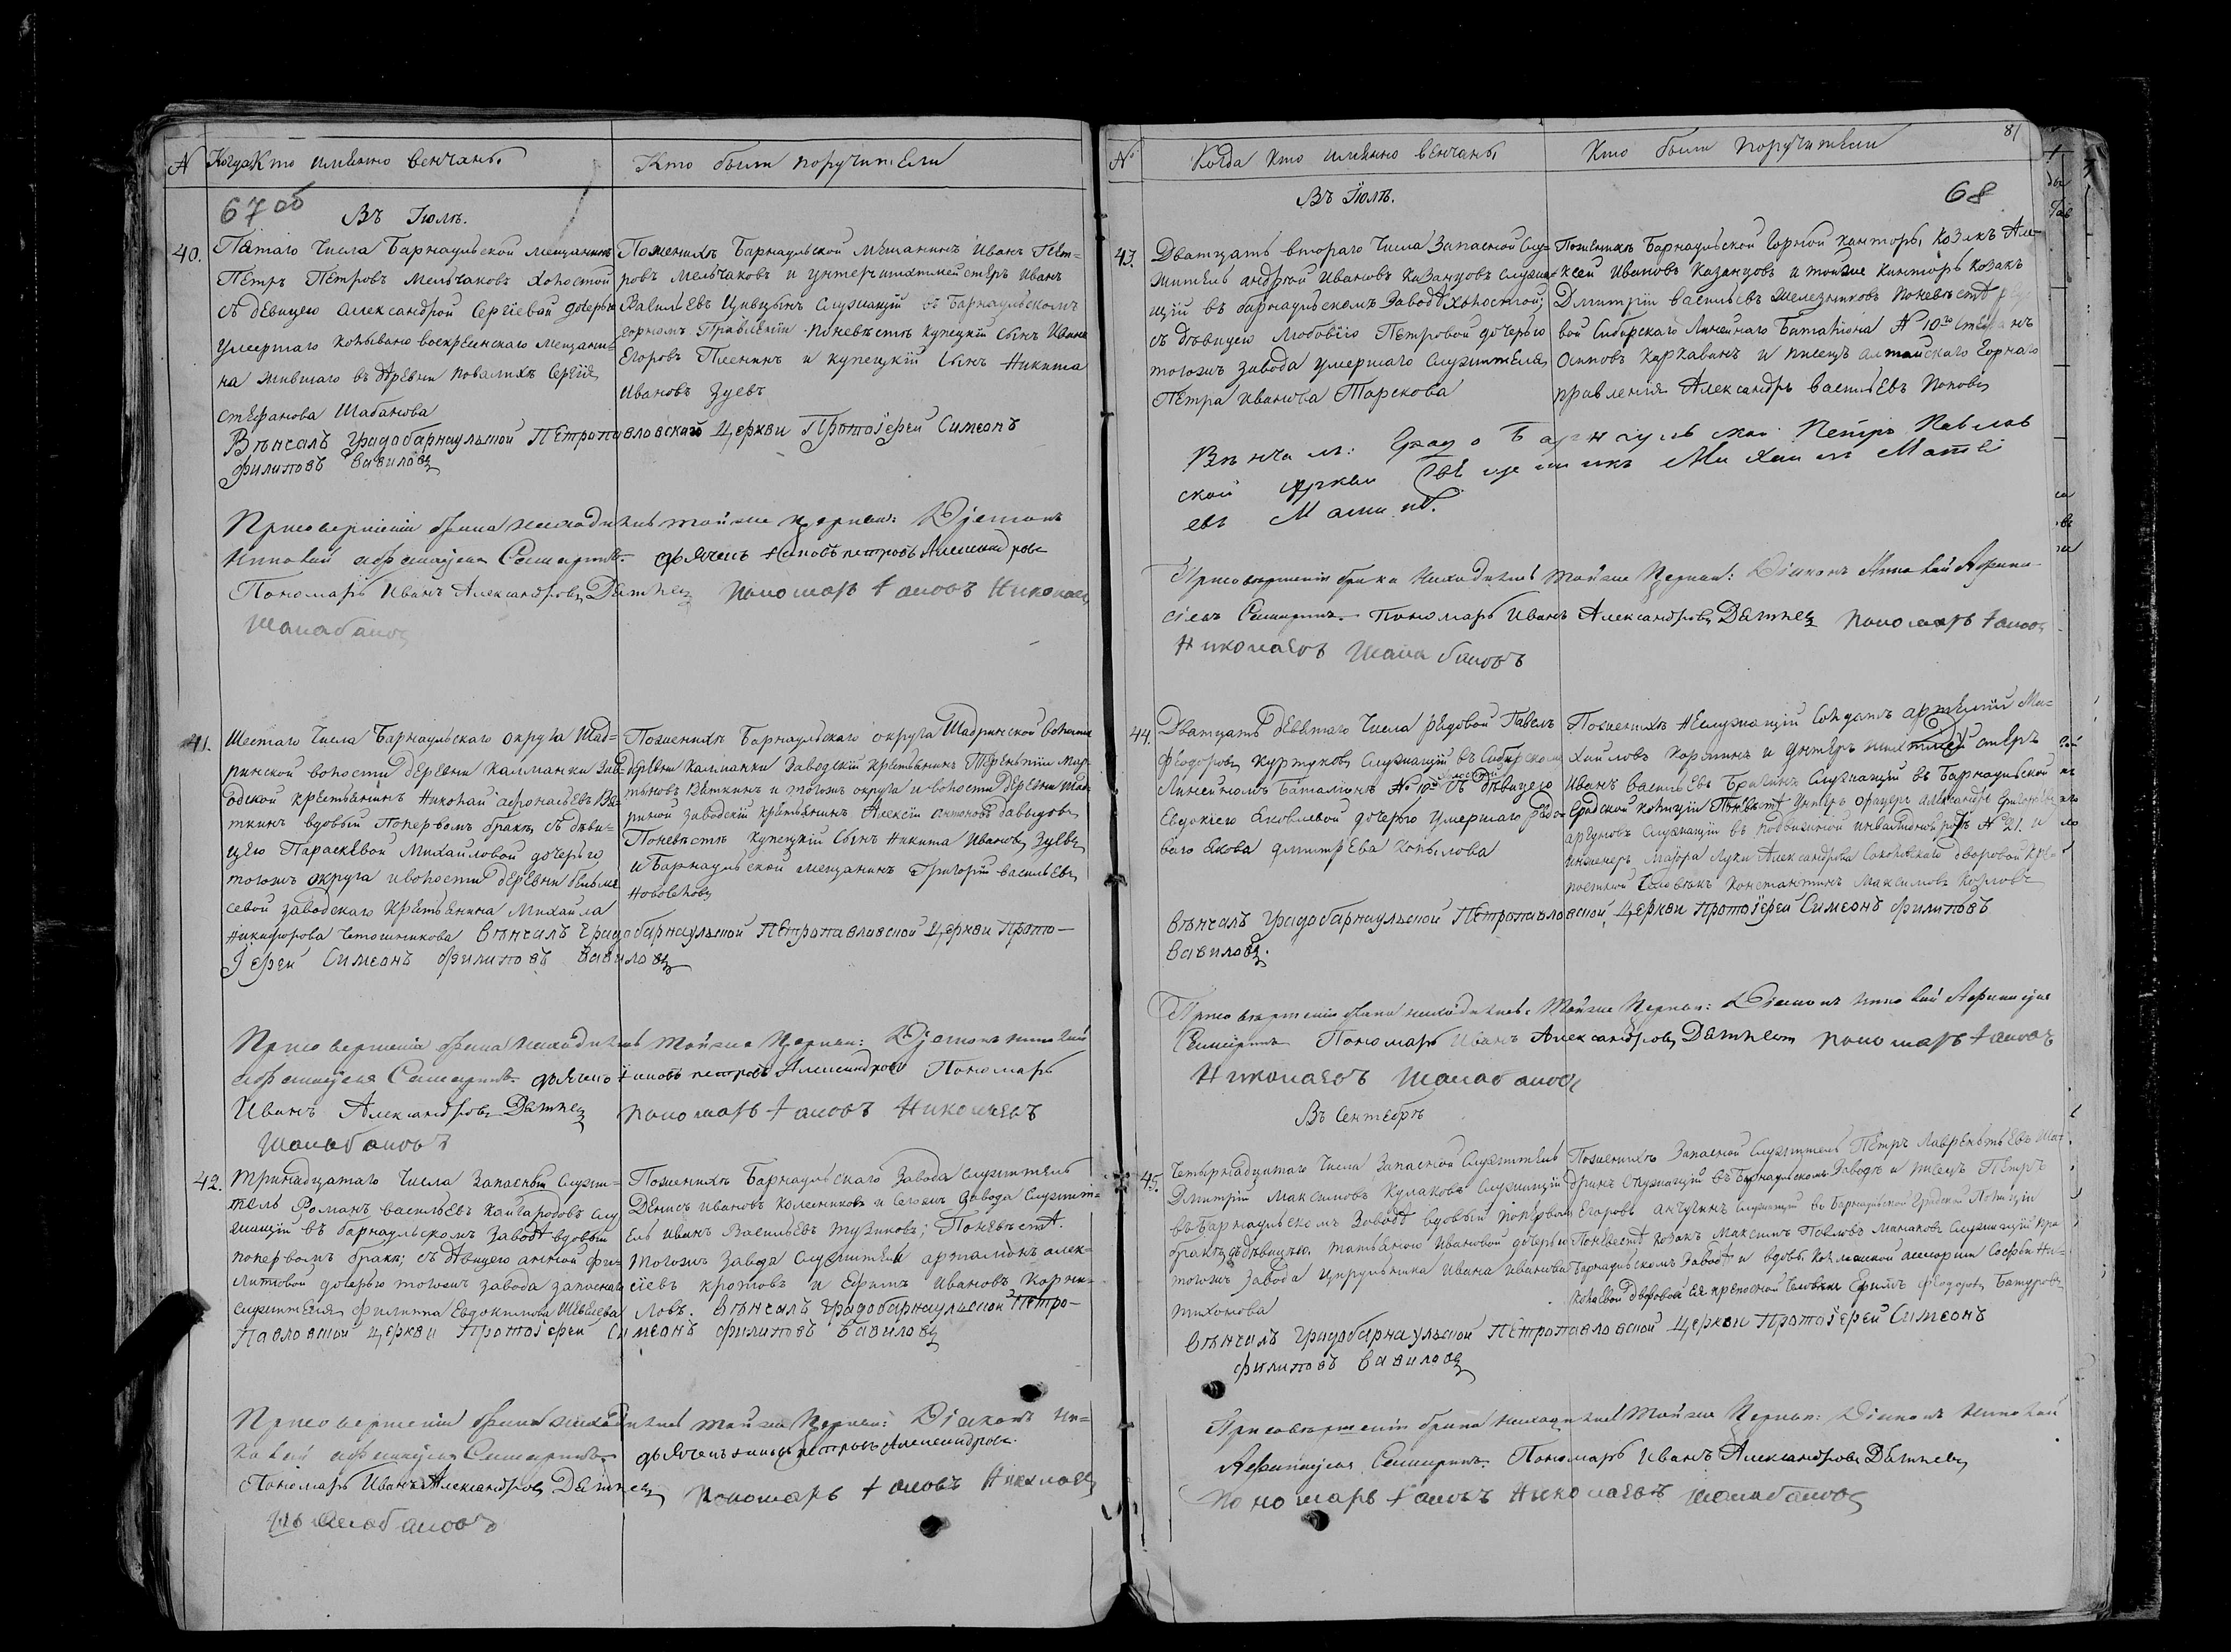 № Когда Кто имянно венчаны
Кто были поручители
67 об
Въ Іюле.
40. Пятаго Числа Барнаульской мещанинъ
Петръ Петровъ Мельчаковъ Холостой
съ девицею Александрой Сергіевой дочерью
умершаго Колывано воскресенскаго мещани-
на жившаго въ деревни повалихе Сергія
Стефанова Шабанова
Поженихе Барнаульской Мещанинъ Иванъ Пет-
ровъ Мельчаковъ и унтершихтмейстеръ Иванъ
Васильевъ Служащій въ Барнаульскомъ
горномъ Правленіи поневесте купецкій Сынъ Иванъ
Егоровъ Пленинъ и купецкій Сынъ Никита
Ивановъ Зуевъ
Вѣнчалъ Градобарнаульской Петропавловской Церкви Протоіерей Симеонъ
Филиповъ Вавиловъ
При совершеніи брака находились тойже Церкви: Діаконъ
Николай Афанасьевъ дьячекъ Яковъ петровъ Александровъ
Пономарь Иванъ Александровъ пономарь Яковъ Николаевъ
Шалабановъ
41. Шестаго Числа Барнаульскаго округа Шад-
ринской волости деревни Калманки Зав-
одской крестьянинъ Николай Афонасьевъ Вя-
ткинъ вдовый попервомъ браке, съ деви-
цею Параскевой Михайловой дочерью
тогожъ округа иволости деревни
заводскаго Крестьянина Михайла
Никифорова
Поженихе Барнаульскаго округа Шадринской волости
деревни Калманки Заводскій Крестьянинъ Терентій Мар-
тыновъ Вяткинъ и тогожъ округа и волости деревни Шад-
риной заводскій крестьянинъ Алексій Антоновъ Давыдовъ
Поневесте купецкій Сынъ Никита Ивановъ Зуевъ
и Барнаульской мещанинъ Григорій Васильевъ
Новоселовъ
вѣнчалъ Градобарнаульской Петропавловской Церкви Прото-
Іерей Симеонъ Филиповъ Вавиловъ
При совершеніи брака находились тойже Церкви: Діаконъ Николай
Афанасьевъ дьячекъ Яковъ петровъ Александровъ Пономарь
Иванъ Александровъ пономарь Яковъ Николаевъ
Шалабановъ
42. Тринадцатаго Числа Запасный Служи-
тель Романъ Васильевъ Кайгородовъ слу
жащій въ барнаульскомъ Заводе вдовый
попервомъ браке; съ девицею анной Фи-
липовой дочерью тогожъ завода запаснаго
служителя Филиппа Евдокимова
Поженихе Барнаульскаго Завода служитель
Денисъ Ивановъ Колесниковъ и тогожъ Завода служит-
ель Иванъ Васильевъ Тузиковъ; Поневесте.
тогожъ Завода Служители арталионъ алек-
сіевъ кротовъ и Ефимъ Ивановъ Корни-
ловъ. Вѣнчалъ Градобарнаульской Петро-
Павловской церкви Протоіерей Симеонъ Филиповъ Вавиловъ
При совершеніи брака находились тойже Церкви: Діаконъ Ни-
колай Афанасьевъ дьячекъ Яковъ петровъ Александровъ.
Пономарь Иванъ Александровъ пономарь Яковъ Николаевъ
Шалабановъ
81
№ Когда кто имянно венчаны
Кто были поручители
Въ Іюле.
68
43. Дватцать втораго Числа Запасной Слу-
житель андрей Ивановъ Казанцовъ служа-
щій въ барнаульскомъ Заводе холостой,
съ девицею Любовію Петровой дочерью
тогожъ завода умершаго Служителя
Петра Иванова Тарскова
Поженихе Барнаульской Горной канторы Козакъ Але-
ксей Ивановъ Казанцовъ и тойже Канторы козакъ
Дмитрій Васильевъ Железниковъ поневесте рядо-
вой Сибирскаго Линейнаго Баталіона № 10го Стефанъ
Осиповъ Каркавинъ и писецъ алтайскаго Горнаго
правленія Александръ Васильевъ Поповъ
Вѣнчалъ: Градо Барнаульской Петро Павлов
ской церкви Священникъ Михаилъ Матве
евъ
При совершеніи брака находились тойже Церкви: Діаконъ Николай Афана-
сіевъ Пономарь Иванъ Александровъ пономарь Яковъ
Николаевъ Шалабановъ
44. Дватцать девятаго Числа рядовой Павелъ
Феодоровъ Куртуковъ Служащій въ Сибирскомъ
Линейномъ Баталіоне № 10го холостой съ девицею
Евдокіею Яковлевой дочерью умершаго рядо-
ваго Якова дмитріева Копылова
Поженихе Неслужащій Солдатъ артемій Ми-
хайловъ Корякинъ и унтеръ шихтмейстеръ
Иванъ Васильевъ Служащій въ Барнаульской
Градской полиціи Поневесте Унтеръ офицеръ александръ Григорьевъ
аргуновъ Служащій въ подвижной инвалидной роте № 21. и
инженеръ Маіора Луки Александрова Соколовскаго дворовой кре
постной Человекъ Константинъ Максимовъ Козловъ
вѣнчалъ Градобарнаульской Петропавловской Церкви Протоіерей Симеонъ Филиповъ
Вавиловъ.
При совершеніи брака находились Тойже Церкви: Діаконъ Николай Афанасьевъ
Пономарь Иванъ Александровъ пономарь Яковъ
Николаевъ Шалабановъ
Въ Сентебре
45. Четырнадцатаго Числа Запасной Служитель
Дмитрій Максимовъ Кулаковъ Служащій
въ Барнаульскомъ Заводе вдовый попервомъ
браке, съ девицею Татьяною Ивановой дочерью
тогожъ Завода цирульника Ивана Иванова
Тихонова
Поженихе Запасной Служитель Петръ Лаврентьевъ
Служащій въ Барнаульскомъ Заводе и писецъ Петръ
Егоровъ Служащій въ Барнаульской Градской Полиціи
Поневесте Козакъ Максимъ Павловъ Служащій при
Барнаульскомъ Заводе и вдовы Софьи
дворовой ея крепостной Человекъ Ефимъ Феодоровъ Батуровъ
вѣнчалъ Градобарнаульской Петропавловской Церкви Протоіерей Симеонъ
Филиповъ Вавиловъ
При совершеніи брака находились Тойже Церкви: Діаконъ Николай
Афанасьевъ Пономарь Иванъ Александровъ
пономарь Яковъ Николаевъ Шалабановъ